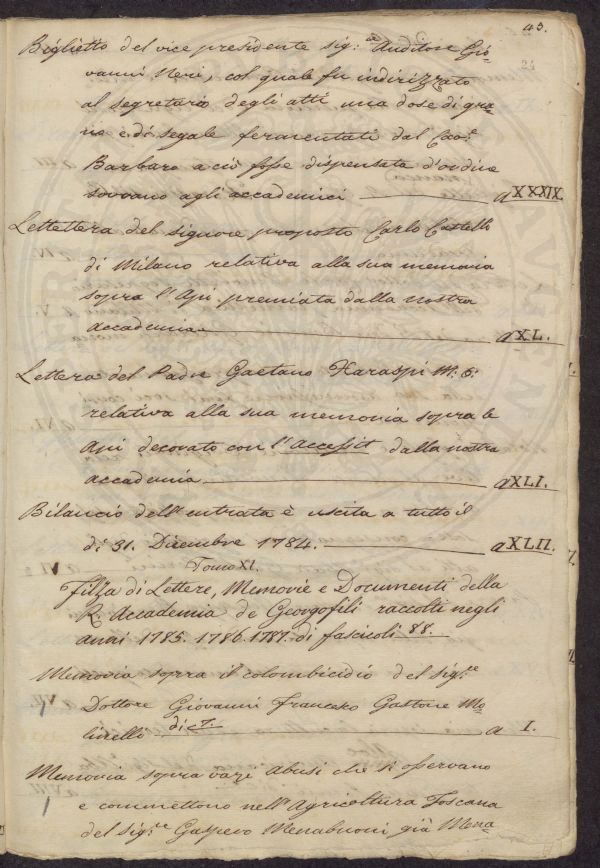 43.
24
Biglietto del vice presidente sig:re Auditore Gio-
vanni Neri, col quale fu indirizzato
al segretario degli atti una dose di gra-
no e di segale fermentati dal Cav:e
Barbaro a ciò fosse dispensata d'ordine
sovrano agli accademici a XXXIX.
Lettettera del signore proposto Carlo Castelli
di Milano relativa alla sua memoria
sopra l'Api premiata dalla nostra
accademia a XL.
Lettera del Padre Gaetano Haraspi M: O:
relativa alla sua memoria sopra le
Api decorato con l'accessit dalla nostra
accademia a XLI.
Bilancio dell'entrata è uscita a tutto il
dì 31. Dicembre 1784. a XLII.
Tomo XI.
Filza di Lettere, Memorie e Documenti della
R. Accademia de Georgofili raccolti negli
anni 1785. 1786. 1787. di fascicoli 88.
Memoria sopra il colombicidio del sig:re
Dottore Giovanni Francesco Gastone Mo-
linelli di a I.
Memoria sopra varj abusi che si osservano
e commettono nell'Agricoltura Toscana
del sig:re Gaspero Menabuoni già Mena-